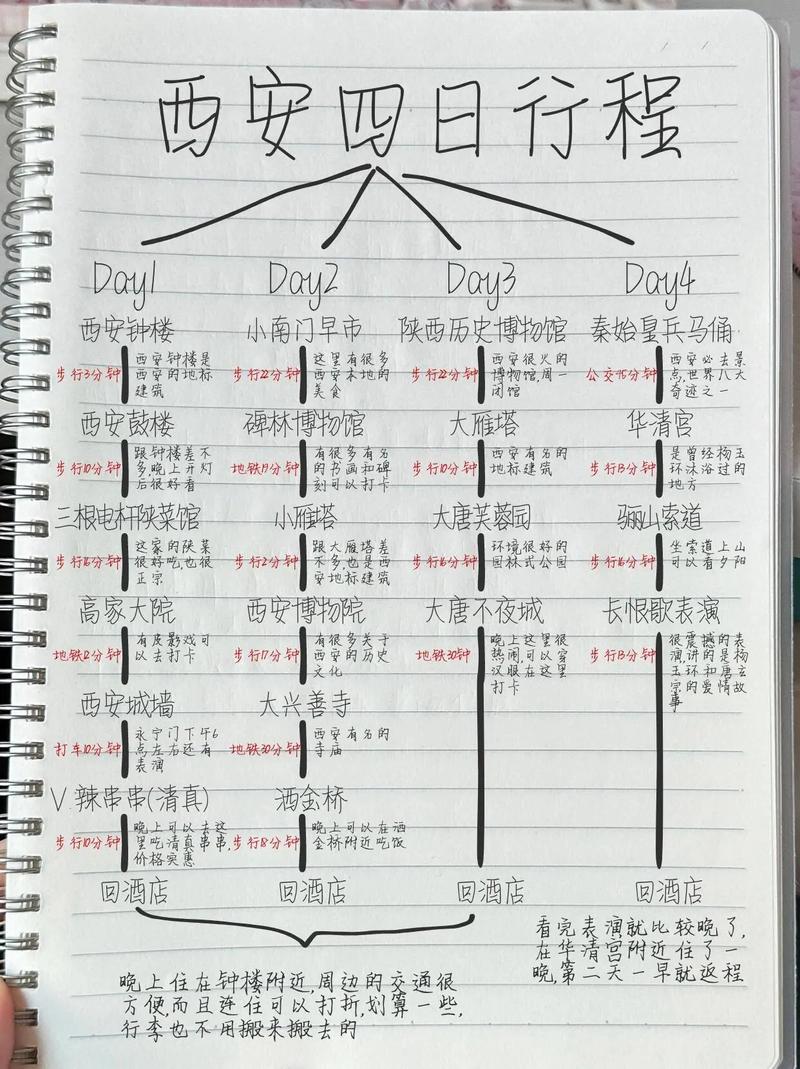 西安四日行程
Day1
西安钟楼
步行3分钟
西安钟楼是
西安的地标
建筑
西安鼓楼
步行10分钟
跟钟楼差不
多,晚上开灯
后很好看
三根电杆陕菜馆
步行16分钟
这家的陕菜
很好吃,也很
正宗
高家大院
地铁12分钟
有皮影戏可
以去打卡
西安城墙
打车10分钟
永宁门下午6
点左右还有
表演
V.辣串串(清真)
步行10分钟
晚上可以去这
里吃清真串串,
价格实惠
回酒店
Day2
小南门早市
步行22分钟
这里有很多
西安本地的
美食
碑林博物馆
地铁19分钟
有很多有名
的书画和碑
刻可以打卡
小雁塔
步行2分钟
跟大雁塔差
不多,也是西
安地标建筑
西安博物院
步行17分钟
有很多关于
西安的历史
文化
大兴善寺
地铁30分钟
西安有名的
寺庙
洒金桥
步行18分钟
晚上可以在洒
金桥附近吃饭
回酒店
Day3
陕西历史博物馆
步行22分钟
西安很火的
博物馆,周一
闭馆
大雁塔
步行10分钟
西安有名的
地标建筑
大唐芙蓉园
步行16分钟
环境很好的
园林式公园
大唐不夜城
地铁30分钟
晚上这里很
热闹,可以穿
汉服在这里
打卡
回酒店
Day4
秦始皇兵马俑
公交45分钟
西安必去景
点,世界八大
奇迹之一
华清宫
步行13分钟
是曾经杨玉
环沐浴过的
地方
骊山索道
步行16分钟
坐索道上山
可以看夕阳
长恨歌表演
步行13分钟
很震撼的表
演,讲的是杨
玉环和唐玄
宗的爱情故
事
回酒店
晚上住在钟楼附近,周边的交通很
方便,而且连住可以打折,划算一些,
行李也不用搬来搬去的
看完表演就比较晚了,
在华清宫附近住了一
晚,第二天一早就返程